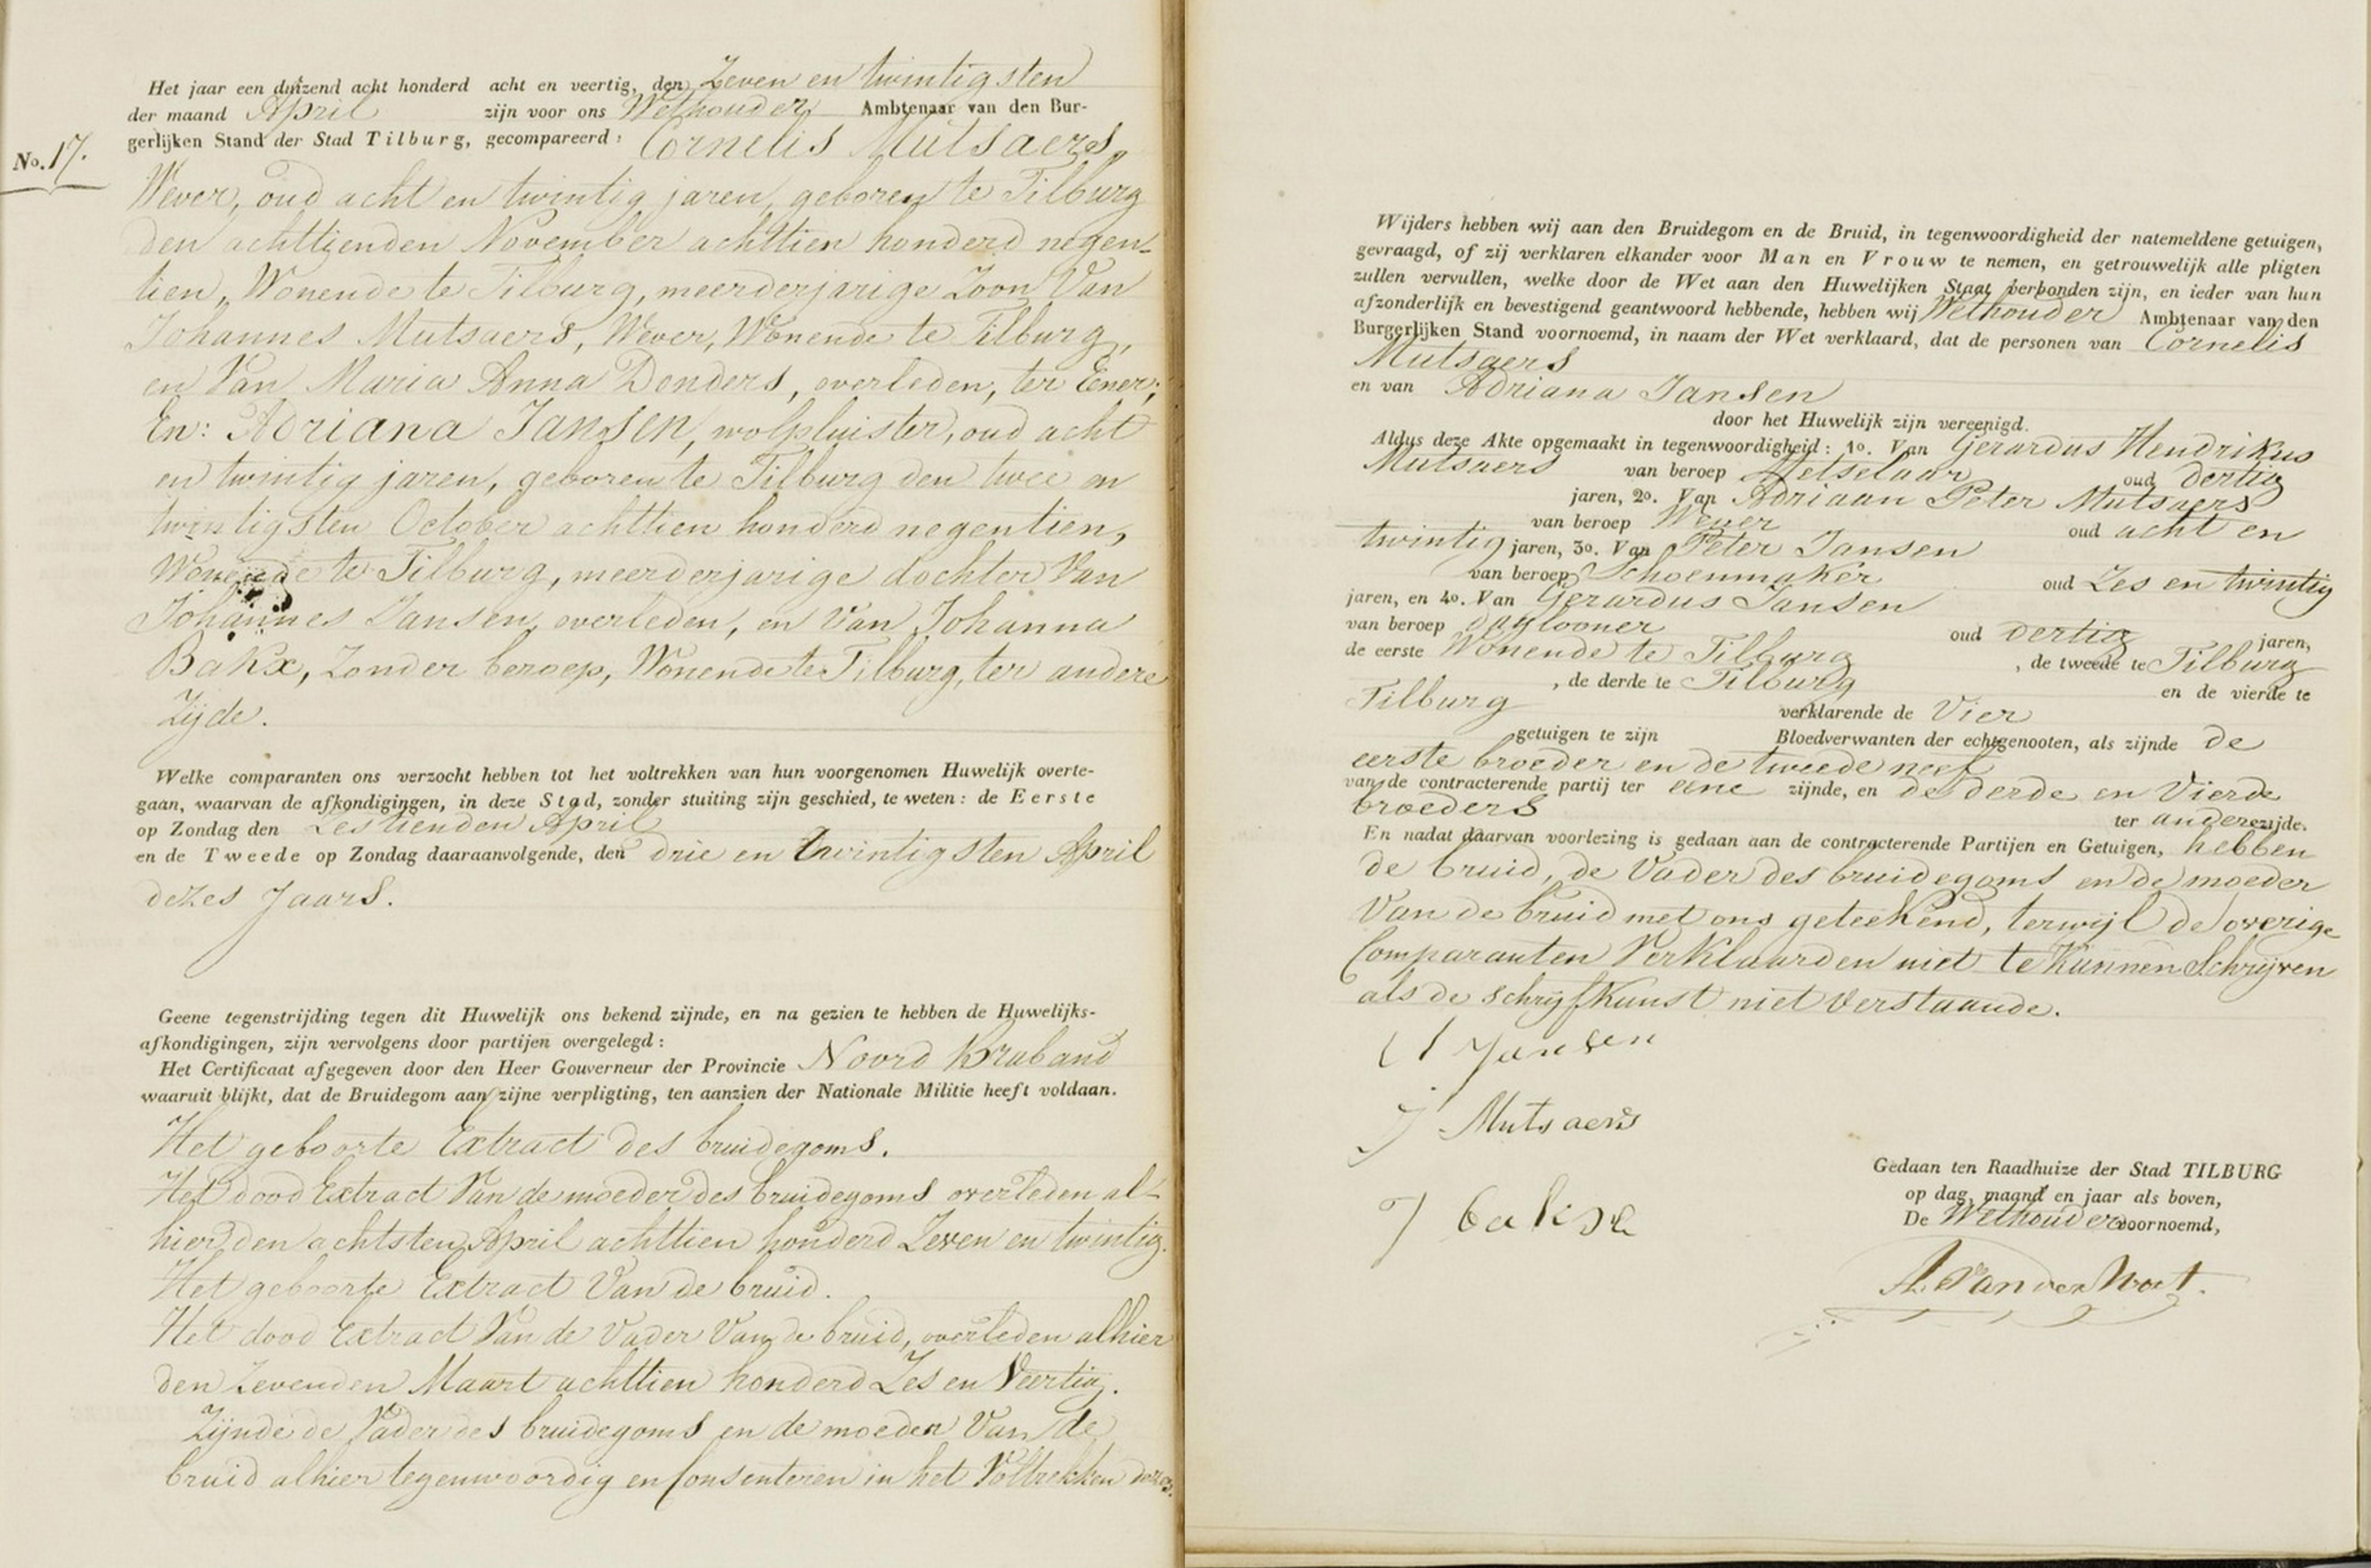 Het jaar een duizend acht honderd acht en veertig, den Zeven en twintigsten
der maand April zijn voor ons Wethouder Ambtenaar van den Bur-
gerlijken Stand der Stad Tilburg, gecompareerd: Cornelis Mutsaers,
No. 17.
Wever, oud acht en twintig jaren, geboren te Tilburg
den achttienden November achttien honderd negen-
tien, Wonende te Tilburg, meerderjarige Zoon Van
Johannes Mutsaers, Wever, Wonende te Tilburg,
en Van Maria Anna Donders, overleden, ter Ener;
En: Adriana Jansen, wolpluister, oud acht
en twintig jaren, geboren te Tilburg den twee en
twintigsten October achttien honderd negentien,
Wonende te Tilburg, meerderjarige dochter Van
Johannes Jansen, overleden, en Van Johanna
Bakx, Zonder beroep, Wonende te Tilburg, ter andere
Zijde.
Welke comparanten ons verzocht hebben tot het voltrekken van hun voorgenomen Huwelijk overte-
gaan, waarvan de afkondigingen, in deze Stad, zonder stuiting zijn geschied, te weten: de Eerste
op Zondag den Zestienden April
en de Tweede op Zondag daaraanvolgende, den drie en twintigsten April
dezes Jaars.
Geene tegenstrijding tegen dit Huwelijk ons bekend zijnde, en na gezien te hebben de Huwelijks-
afkondigingen, zijn vervolgens door partijen overgelegd:
Het Certificaat afgegeven door den Heer Gouverneur der Provincie Noord Braband
waaruit blijkt, dat de Bruidegom aan zijne verpligting, ten aanzien der Nationale Militie heeft voldaan.
Het geboorte Extract des bruidegoms.
Het dood Extract Van de moeder des bruidegoms overleden al-
hier den achtsten April achttien honderd Zeven en twintig.
Het geboorte Extract Van de bruid.
Het dood Extract Van de Vader Van de bruid, overleden alhier
den Zevenden Maart achttien honderd Zes en Veertig.
Zijnde de Vader des bruidegoms en de moeder Van de
bruid alhier tegenwoordig en Consenteren in het Voltrekken dezes.
Wijders hebben wij aan den Bruidegom en de Bruid, in tegenwoordigheid der natemeldene getuigen,
gevraagd, of zij verklaren elkander voor Man en Vrouw te nemen, en getrouwelijk alle pligten
zullen vervullen, welke door de Wet aan den Huwelijken Staat verbonden zijn, en ieder van hun
afzonderlijk en bevestigend geantwoord hebbende, hebben wij Wethouder Ambtenaar van den
Burgerlijken Stand voornoemd, in naam der Wet verklaard, dat de personen van Cornelis
Mutsaers
en van Adriana Jansen
door het Huwelijk zijn vereenigd.
Aldus deze Akte opgemaakt in tegenwoordigheid: 1o. Van Gerardus Hendrikus
Mutsaers van beroep Metselaar oud dertig
jaren, 2o. Van Adriaan Peter Mutsaers
van beroep Wever oud acht en
twintig jaren, 3o. Van Peter Jansen
van beroep Schoenmaker oud Zes en twintig
jaren, en 4o. Van Gerardus Jansen
van beroep daglooner oud dertig jaren,
de eerste Wonende te Tilburg, de tweede te Tilburg
, de derde te Tilburg en de vierde te
Tilburg verklarende de Vier
getuigen te zijn Bloedverwanten der echtgenooten, als zijnde de
eerste broeder en de tweede neef
van de contracterende partij ter eene zijnde, en de derde en Vierde
broeders ter andere zijde.
En nadat daarvan voorlezing is gedaan aan de contracterende Partijen en Getuigen, hebben
de bruid, de Vader des bruidegoms en de moeder
Van de bruid met ons geteekend, terwijl de overige
Comparanten Verklaarden niet te kunnen Schrijven
als de schrijfkunst niet Verstaande.
Jansen
J Mutsaers
J bakse
Gedaan ten Raadhuize der Stad TILBURG
op dag, maand en jaar als boven,
De Wethouder voornoemd,